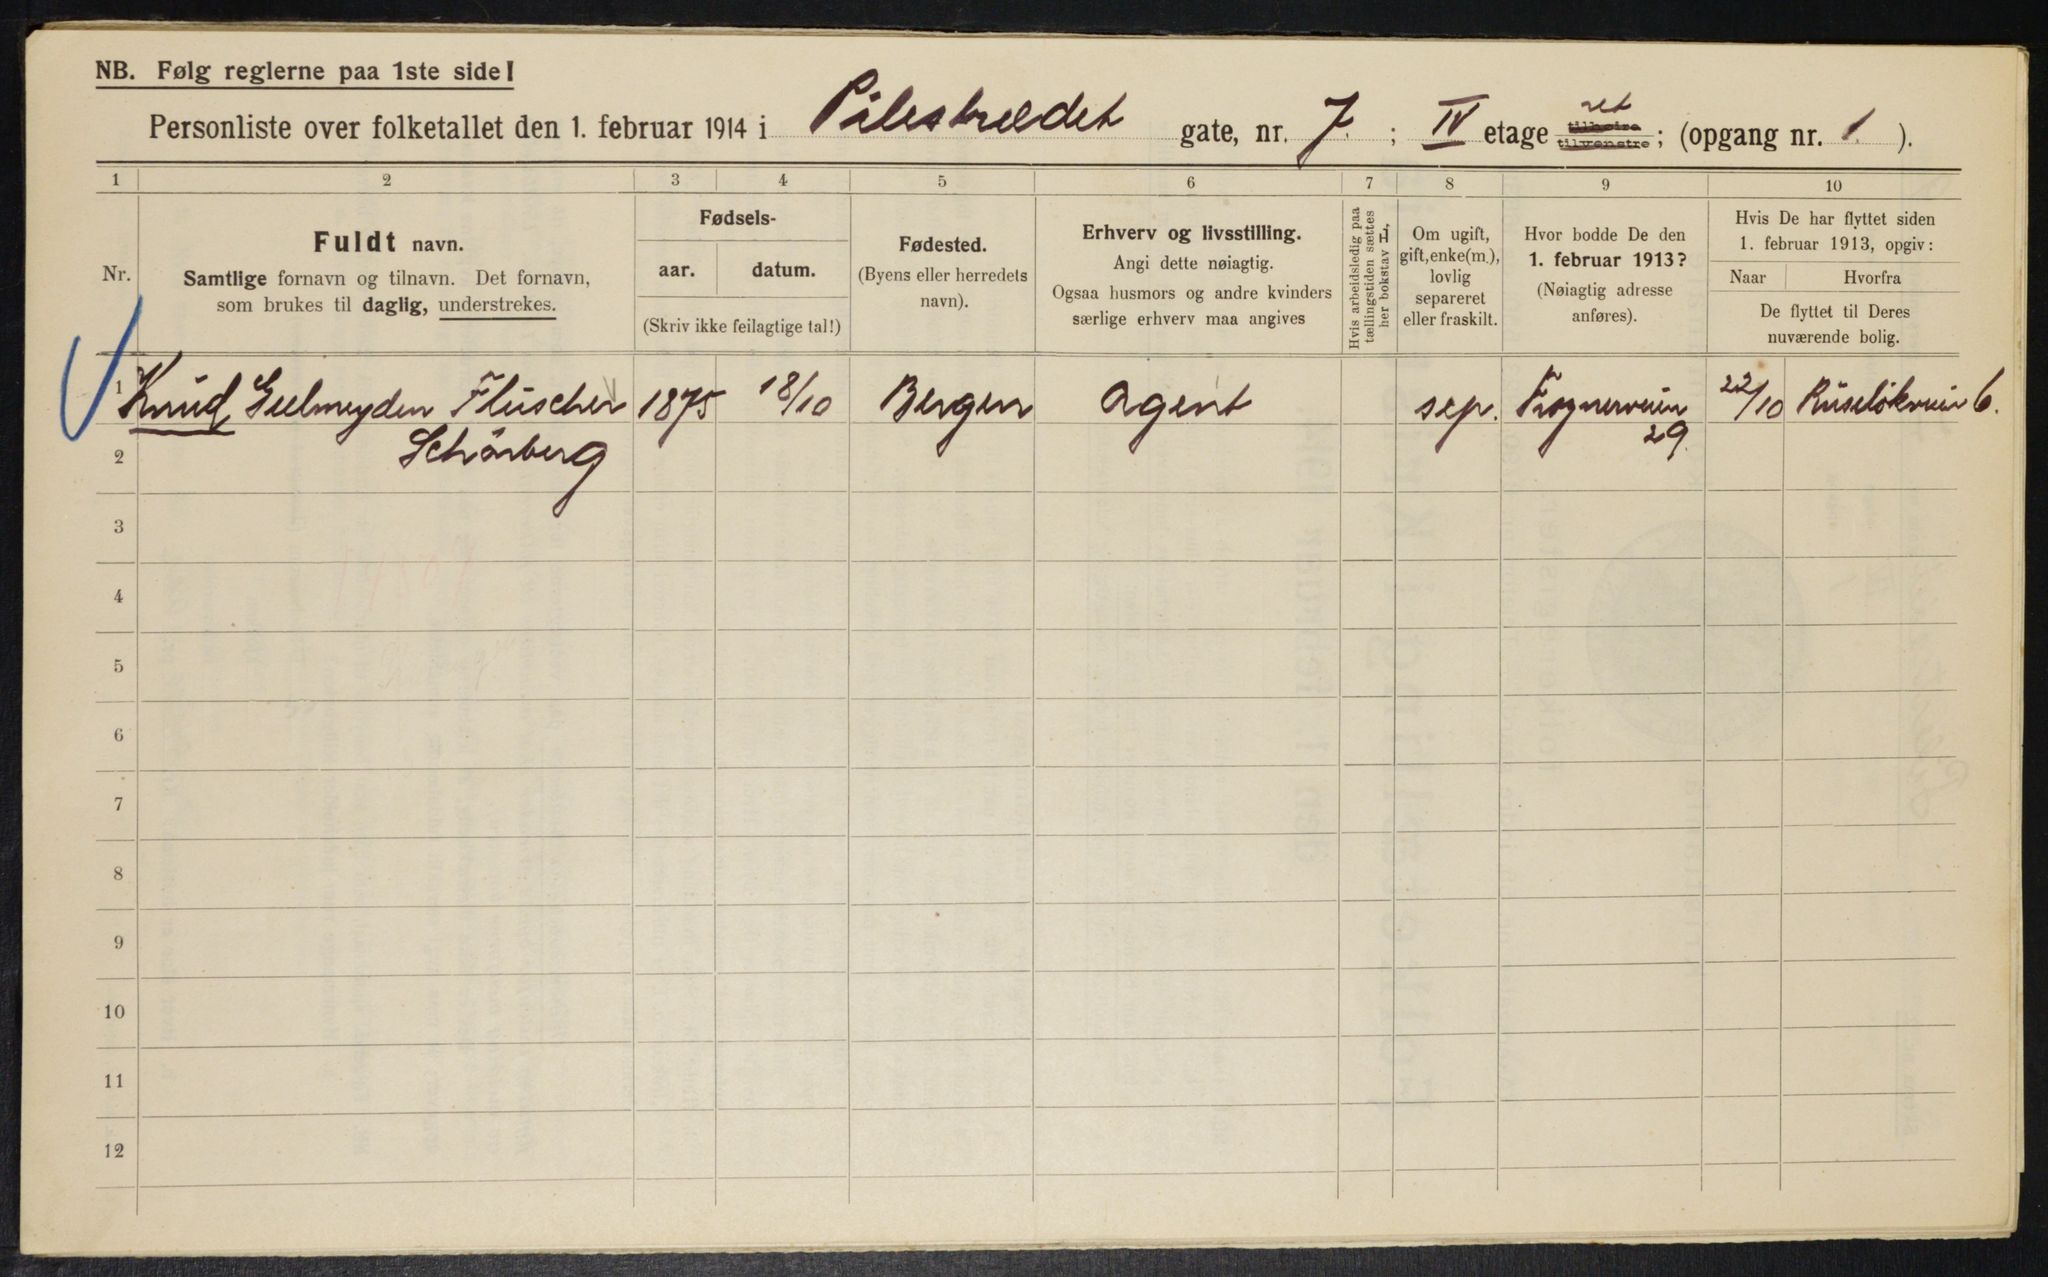 NB. Følg reglerne paa 1ste side!
Personliste over folketallet den 1. februar 1914 i Pilestrædet gate, nr. 7. ; IV etage ret tilhøire tilvenstre ; (opgang nr. 1. ).
1 2 3 4 5 6 7 8 9 10
Nr.
Fuldt navn.
Samtlige fornavn og tilnavn. Det fornavn,
som brukes til daglig, understrekes.
Fødsels-
aar. datum.
(Skriv ikke feilagtige tal!)
Fødested.
(Byens eller herredets
navn).
Erhverv og livsstilling.
Angi dette nøiagtig.
Ogsaa husmors og andre kvinders
særlige erhverv maa angives
Hvis arbeidsledig paa
tællingstiden sættes
her bokstav H.
Om ugift,
gift, enke(m.),
lovlig
separeret
eller fraskilt.
Hvor bodde De den
1. februar 1913?
(Nøiagtig adresse
anføres).
Hvis De har flyttet siden
1. februar 1913, opgiv:
Naar Hvorfra
De flyttet til Deres
nuværende bolig.
1 Knud Geelmeyden Fleischer 1875 18/10 Bergen Agent sep. Frognerveien 22/10 Ruseløkveien 6.
2 Schönberg 29.
3
4
5
6
7
8
9
10
11
12